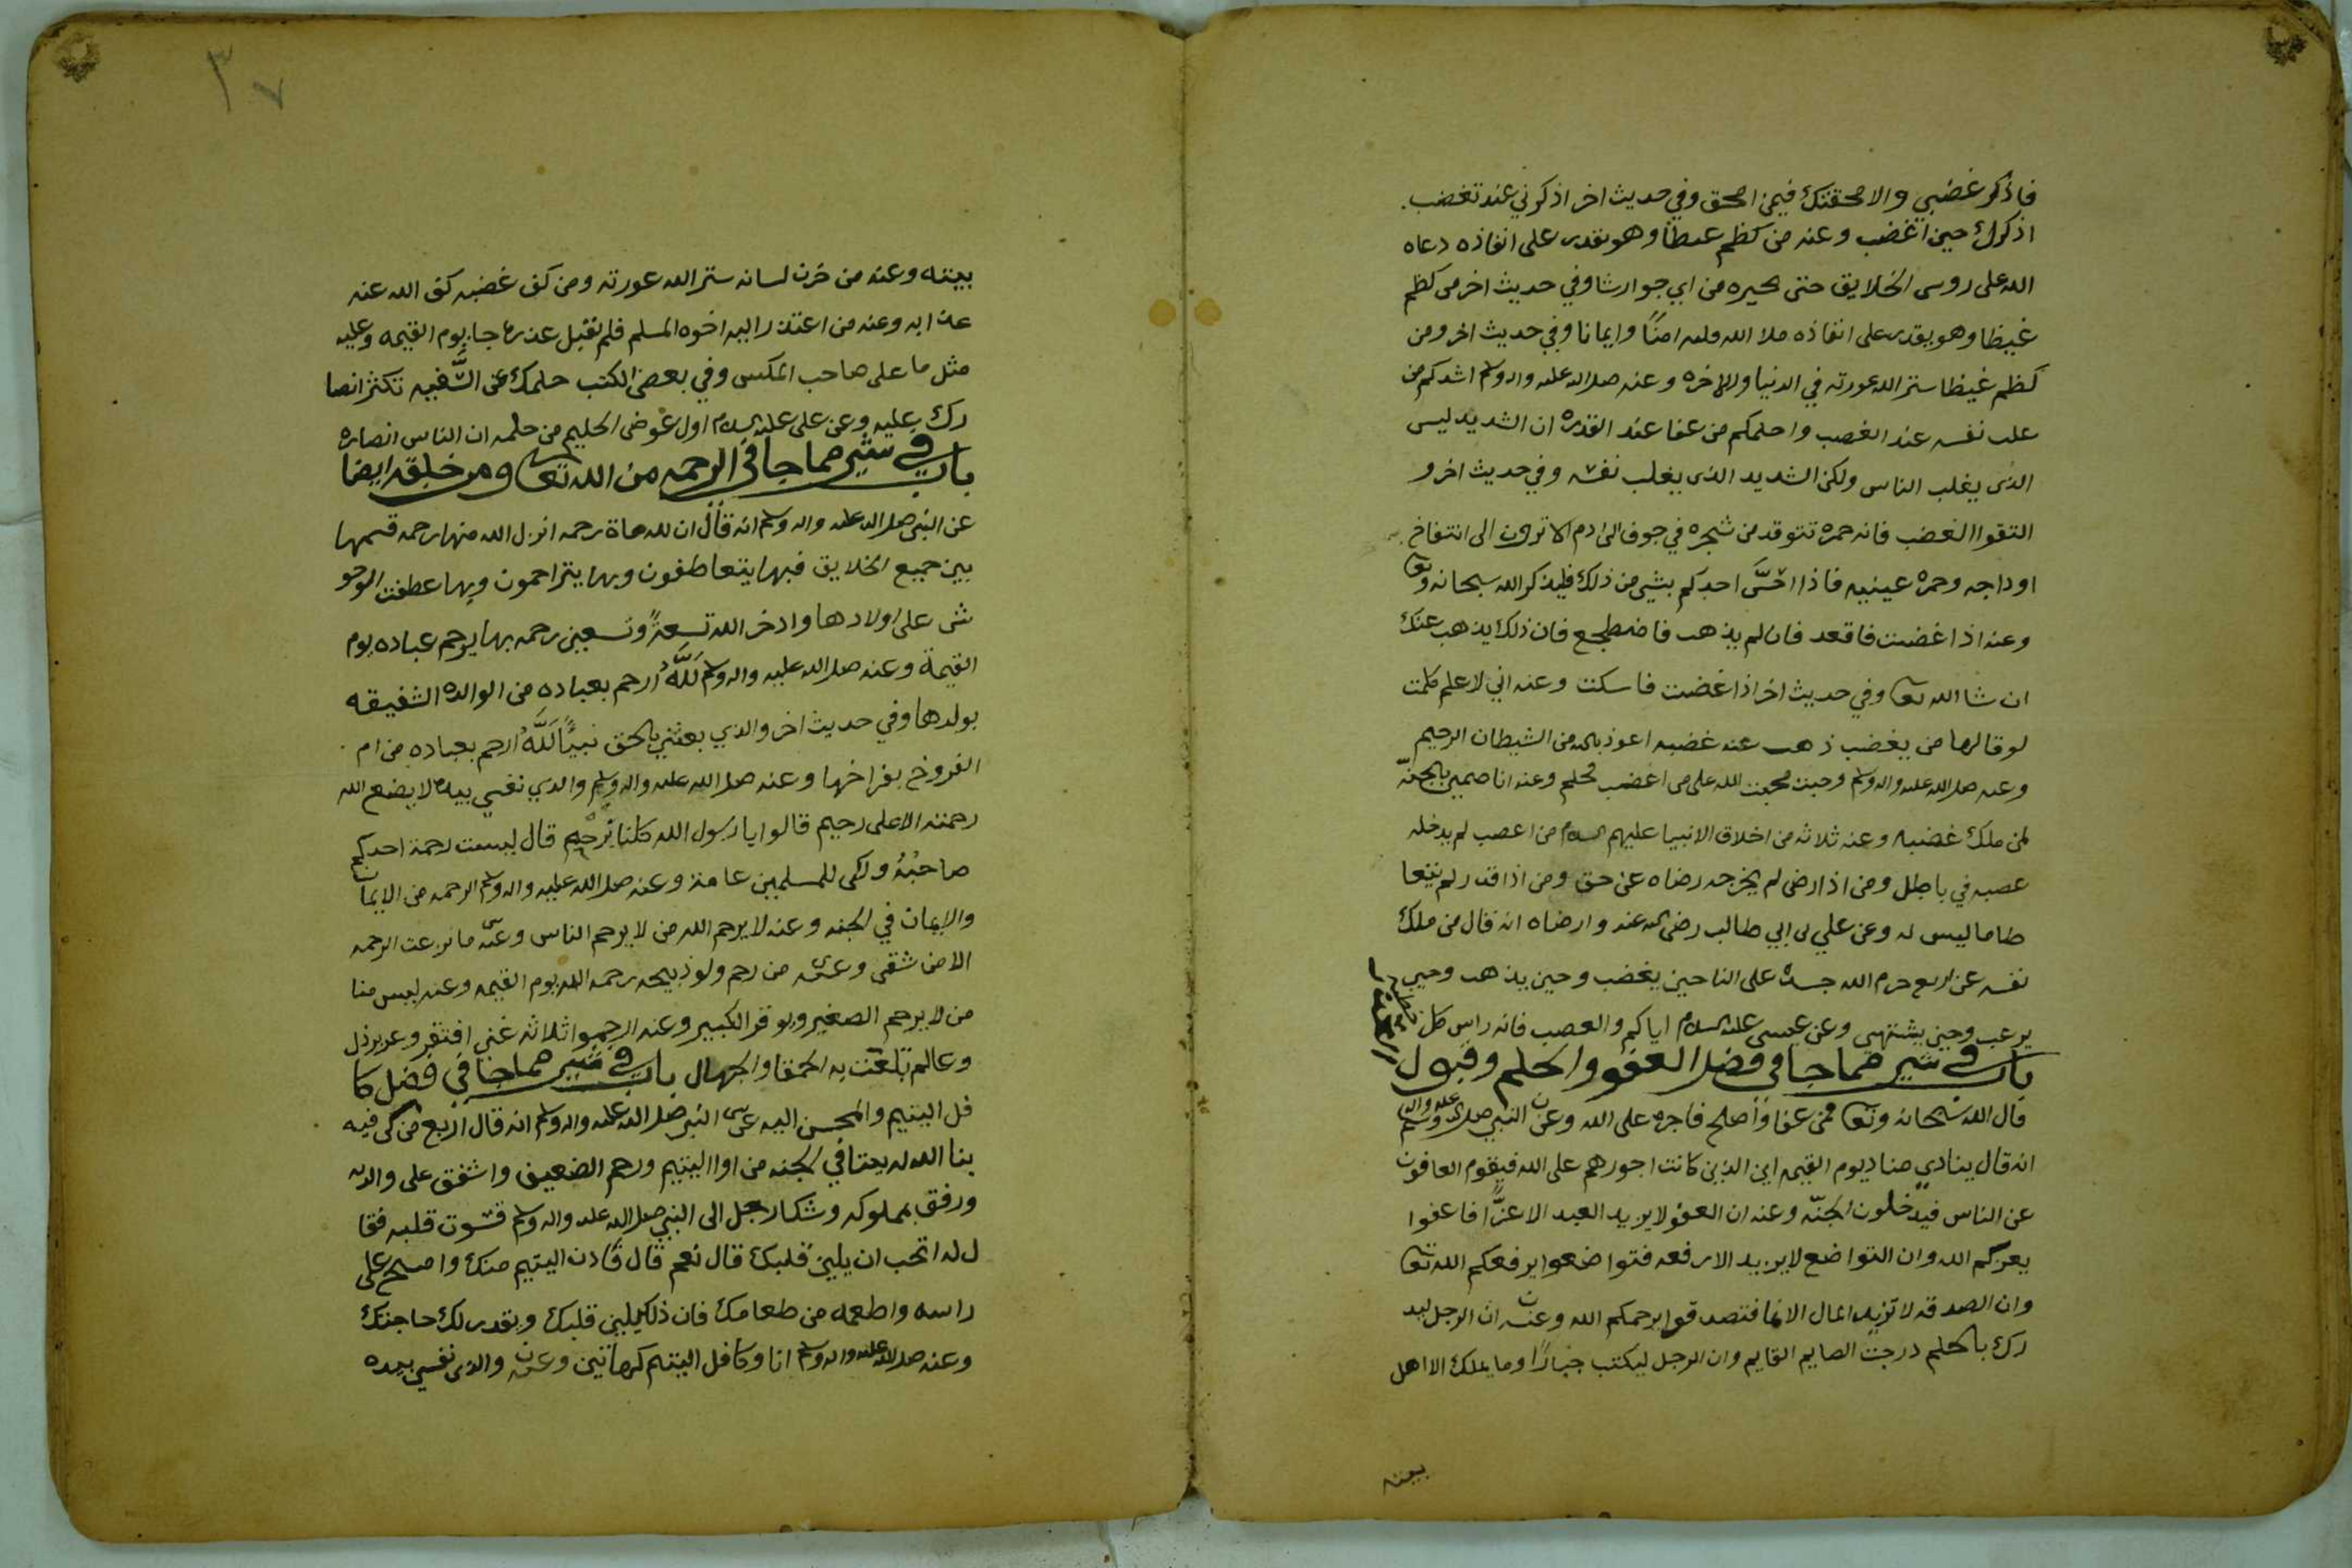 فاذكر غضبي والا محقتك فيمن امحق وفي حديث اخر اذكرني عند تغضب
اذكرك حين اغضب وعنه من كظم غيظا وهو يقدر على انفاذه دعاه
الله على روس الخلايق حتى يخيره من اي جوار شا وفي حديث اخر من كظم
غيظا وهو يقدر على انفاذه ملا الله قلبه امنًا وايمانا وفي حديث اخر ومن
كظم غيظا ستر الله عورته في الدنيا والاخره وعنه صلى الله عليه واله وسلم اشدكم من
غلب نفسه عند الغضب واحلمكم من عفا عند القدره ان الشديد ليس
الذي يغلب الناس ولكن الشديد الذي يغلب نفسه وفي حديث اخر و
التقوا الغضب فانه جمره تتوقد من شجره في جوف ابن ادم الا ترون الى انتفاخ
اوداجه وحمره عينيه فاذا احَسَّ احدكم بشي من ذلك فليذكر الله سبحانه وتعا
وعنه اذا غضبت فاقعد فان لم يذهب فاضطجع فان ذلك يذهب عنك
ان شا الله تعا وفي حديث اخر اذا غضبت فاسكت وعنه اني لاعلم كلمت
لو قالها من يغضب ذهب عنه غضبه اعوذ بالله من الشيطان الرجيم
وعنه صلى الله عليه واله وسلم وجبت محبت الله على من اغضب فحلم وعنه انا ضمين بالجنّه
لمن ملك غضبه وعنه ثلاثه من اخلاق الانبيا عليهم السلام من اغضب لم يدخله
غضبه في باطل ومن اذا رضى لم يخرجه رضاه عن حق ومن اذا قدر لم يتعا
طا ما ليس له وعن علي بن ابي طالب رضى الله عنه وارضاه انه قال من ملك
نفسه عن اربع حرم الله جسده على النا حين يغضب وحين يذهب وحين
يرغب وحين يشتهي وعن عيسى عليه السلام اياكم والغضب فانه راس كل
باب في شي مما جا في فضل العفو والحلم وقبول
قال الله سبحانه وتعا فمن عفا وأصلح فاجره على الله وعن النبي صلى الله عليه واله وسلم
انه قال ينادي مناد يوم القيمه اين الذين كانت اجورهم على الله فيقوم العافون
عن الناس فيدخلون الجنّه وعنه ان العفو لا يزيد العبد الا عزًّا فاعفوا
يعزكم الله وان التواضع لا يزيد الا رفعه فتواضعوا يرفعكم الله تعا
وان الصدقه لا تزيد المال الا نما فتصدقوا يرحمكم الله وعنه ان الرجل ليد
رك بالحلم درجت الصايم القايم وان الرجل ليكتب جبارًا وما يملك الا اهل
بيته
٣٧
بيته وعنه من خزن لسانه ستر الله عورته ومن كف غضبه كف الله عنه
عذابه وعنه من اعتذر اليه اخوه المسلم فلم يقبل عذره جا يوم القيمه وعليه
مثل ما على صاحب المكس وفي بعض الكتب حلمك عن السَّفيه تكثر انصا
رك عليه وعن علي عليه السلام اول عوض الحليم من حلمه ان الناس انصاره
باب في شي مما جا في الرحمه من الله تعا ومن خلقه ايضا
عن النبي صلى الله عليه واله وسلم انه قال ان لله ماة رحمه انزل الله منها رحمه قسمها
بين جميع الخلايق فبها يتعاطفون وبها يتراحمون وبها عطفت الوحو
ش على اولادها وادخر الله تسعةً وتسعين رحمه بها يرحم عباده يوم
القيمة وعنه صلى الله عليه واله وسلم لَلَّهُ ارحم بعباده من الوالده الشفيقه
بولدها وفي حديث اخر والذي بعثني بالحق نبيًّا لَلَّهُ ارحم بعباده من ام
الفروخ بفراخها وعنه صلى الله عليه واله وسلم والذي نفسي بيده لا يضع الله
رحمته الا على رحيم قالوا يا رسول الله كلنا نرحم قال ليست رحمة احدكم
صاحبُهُ ولكن للمسلمين عامة وعنه صلى الله عليه واله وسلم الرحمه من الايمان
والايمان في الجنه وعنه لا يرحم الله من لا يرحم الناس وعنه ما نزعت الرحمه
الا من شقى وعنه من رحم ولو ذبيحه رحمه الله يوم القيمه وعنه ليس منا
من لا يرحم الصغير ويوقر الكبير وعنه ارحموا ثلاثه غني افتقر وعزيز ذل
وعالم تلعّبت به الحمقا والجهال باب في شي مما جا في فضل كا
فل اليتيم والمحسن اليه عن النبي صلى الله عليه واله وسلم انه قال اربع من كن فيه
بنا الله له بيتا في الجنه من اوا اليتيم ورحم الضعيف واشفق على والديه
ورفق بمملوكه وشكا رجل الى النبي صلى الله عليه واله وسلم قسوت قلبه فقا
ل له اتحب ان يلين قلبك قال نعم قال فادن اليتيم منك وامسح على
راسه واطعمه من طعامك فان ذلك يلين قلبك ويقدر لك حاجتك
وعنه صلى الله عليه واله وسلم انا وكافل اليتيم كهاتين وعنه والذي نفسي بيده